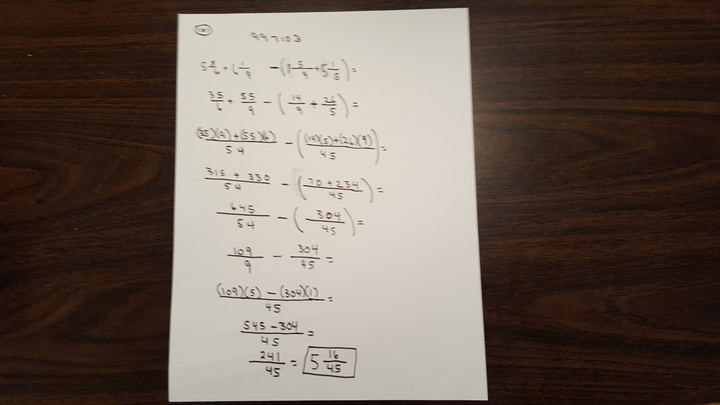 997103
5 5/6 + 6 1/9 - (1 5/9 + 5 1/5) =
35/6 + 55/9 - (14/9 + 26/5) =
(35)(9) + (55)(6)/54 - ((14)(5) + (26)(9)/45) =
315 + 330/54 - (70 + 234/45) =
645/54 - (304/45) =
109/9 - 304/45 =
(109)(5) - (304)(1)/45 =
545 - 304/45 =
241/45 = 5 16/45